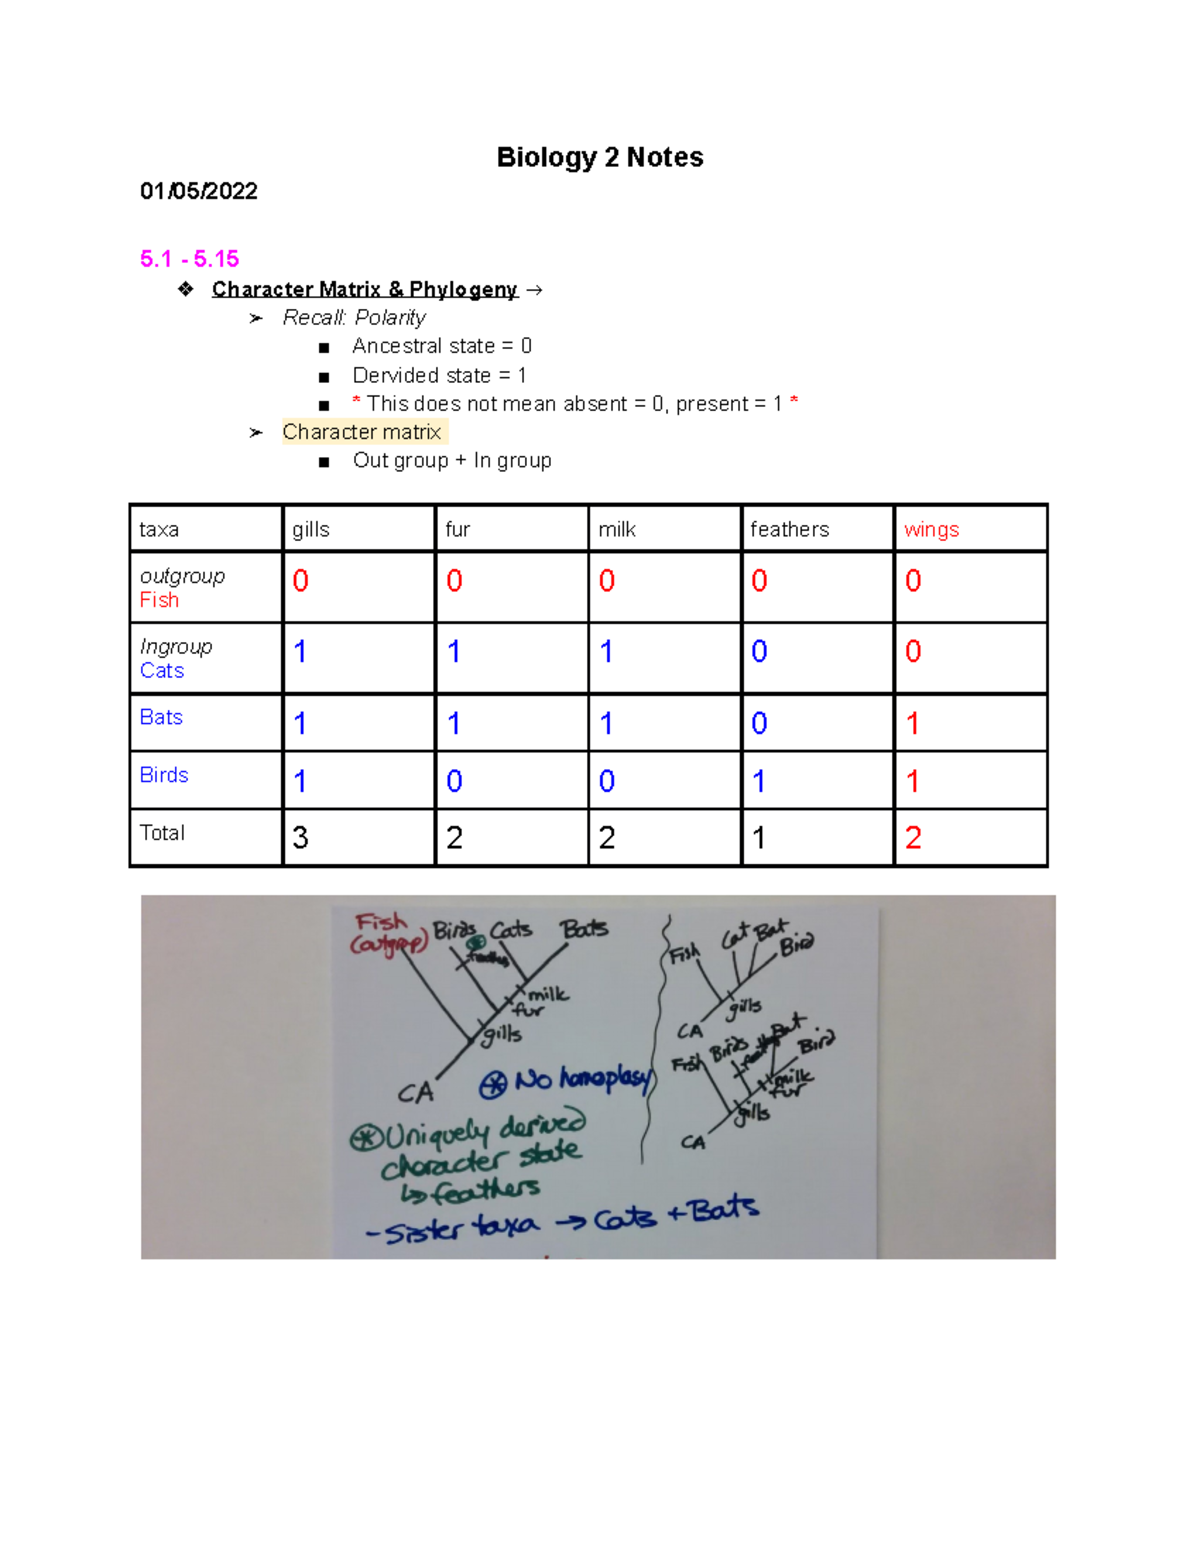 Biology 2 Notes
01/05/2022
5.1 - 5.15
❖ Character Matrix & Phylogeny →
➢ Recall: Polarity
■ Ancestral state = 0
■ Dervided state = 1
■ * This does not mean absent = 0, present = 1 *
➢ Character matrix
■ Out group + In group
taxa gills fur milk feathers wings
outgroup
Fish 0 0 0 0 0
Ingroup
Cats 1 1 1 0 0
Bats 1 1 1 0 1
Birds 1 0 0 1 1
Total 3 2 2 1 2
Fish
(outgroup)
Birds Cats Bats
milk
fur
gills
CA
⊛ No homoplasy
⊛ Uniquely derived
character state
↳ feathers
- Sister taxa → Cats + Bats
Fish Cat Bat Bird
gills
CA
Fish Birds Bat Bird
milk
fur
gills
CA